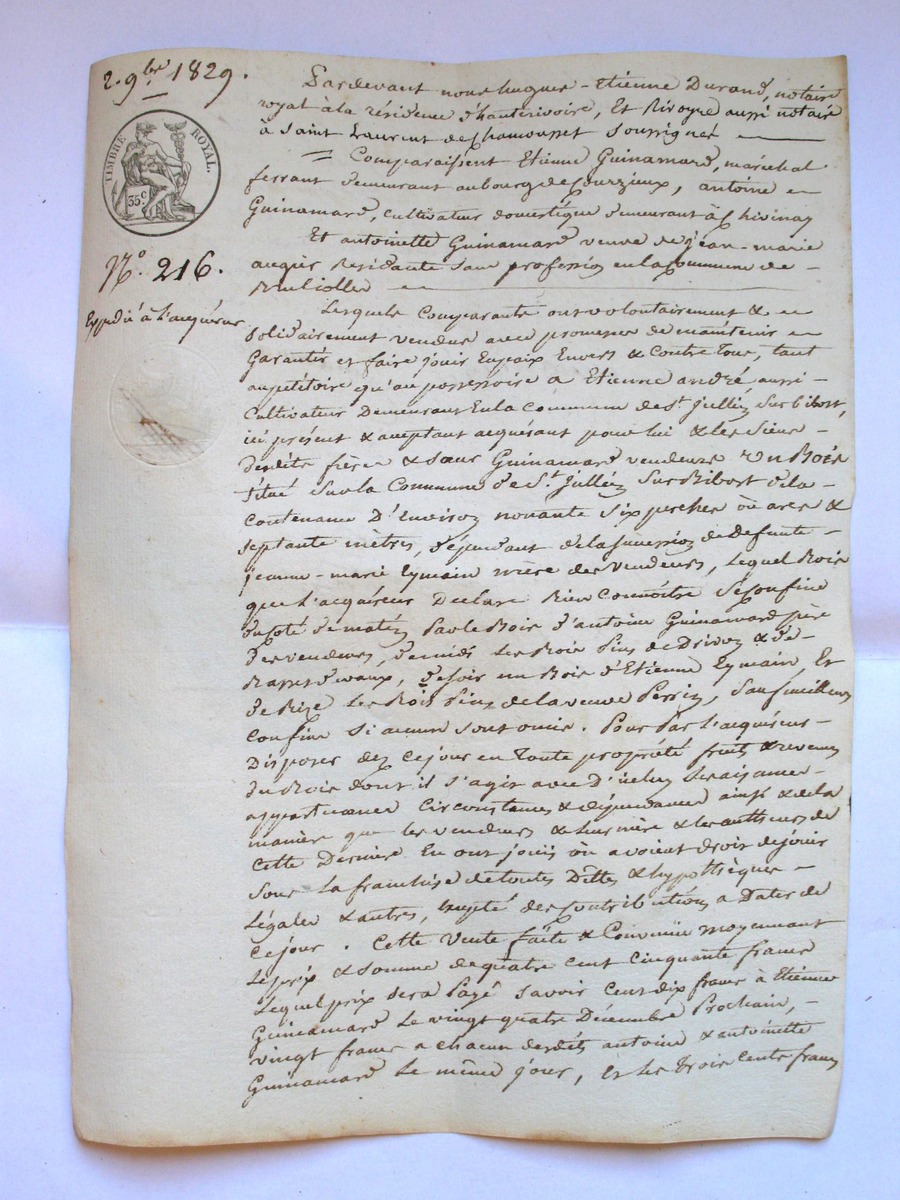 2. 9bre 1829.
TIMBRE ROYAL.
35.c
N.o 216.
Expedié à l'acquéreur
Pardevant nous hugues-Etienne Durand, notaire
royal à la résidence d'hauterivoire, Et Rivoyre aussi notaire
à Saint Laurent de Chamousset soussignés
= Comparaissent Etienne Guinamard, maréchal
ferrant demeurant au bourg de Courzieux, antoine
Guinamard, cultivateur domestique demeurant à Chivinay
Et antoinette Guinamard veuve de jean-marie
Résidante sans profession en la Commune de
Brullioles
Lesquels Comparants ont volontairement &
solidairement vendus avec promesse de maintenir
Garantir et faire jouir En paix Envers & Contre Tous, tant
au pétitoire qu'au possessoire a Etienne andré, aussi
Cultivateur Demeurant En la commune de St. Jullien Sur bibost,
ici présent & acceptant acquérant pour lui & les siens
desdits frères & sœur Guinamard vendeurs Un Bois
situé Sur la Commune de St. Jullien Sur Bibost de la
contenance D'Environ nonante Six perches ou ares &
septante mètres, dépendant de la succession de Defunte
jeanne-marie Eymain mère des vendeurs, Lequel Bois
que L'acquéreur Declare Bien Connoitre Se Confine
du coté de matin Par le Bois d'antoine Guinamard père
Des vendeurs, de midi Les Bois Pins de Drivon & de
de soir un Bois d'Etienne Eymain, Et
de Bize Les Bois Pins de la veuve Perrin, sauf meilleurs
confins Si aucun sont omis. Pour Par L'acquéreur
Disposer dez ce jour en Toute propriété fruits & revenus
du Bois dont il s'agit avec d'icelui les aisances
appartenances Circonstances & dépendances ainsi & de la
manière que les vendeurs & leur mère & les autheurs de
Cette Dernière En ont jouis ou avoient droit de jouir
Sous La franchise de toutes Dettes & hypothèques
Légales & autres, excepté des Contributions a Dater de
ce jour. Cette Vente faite & Convenue moyennant
Le prix & somme de quatre cent cinquante francs
Lequel prix sera Payé savoir Cent dix francs à Etienne
Guinamard Le vingt quatre Décembre Prochain,
vingt francs a chacun desdits antoine & antoinette
Guinamard Le même jour, Et Les Trois Cents francs